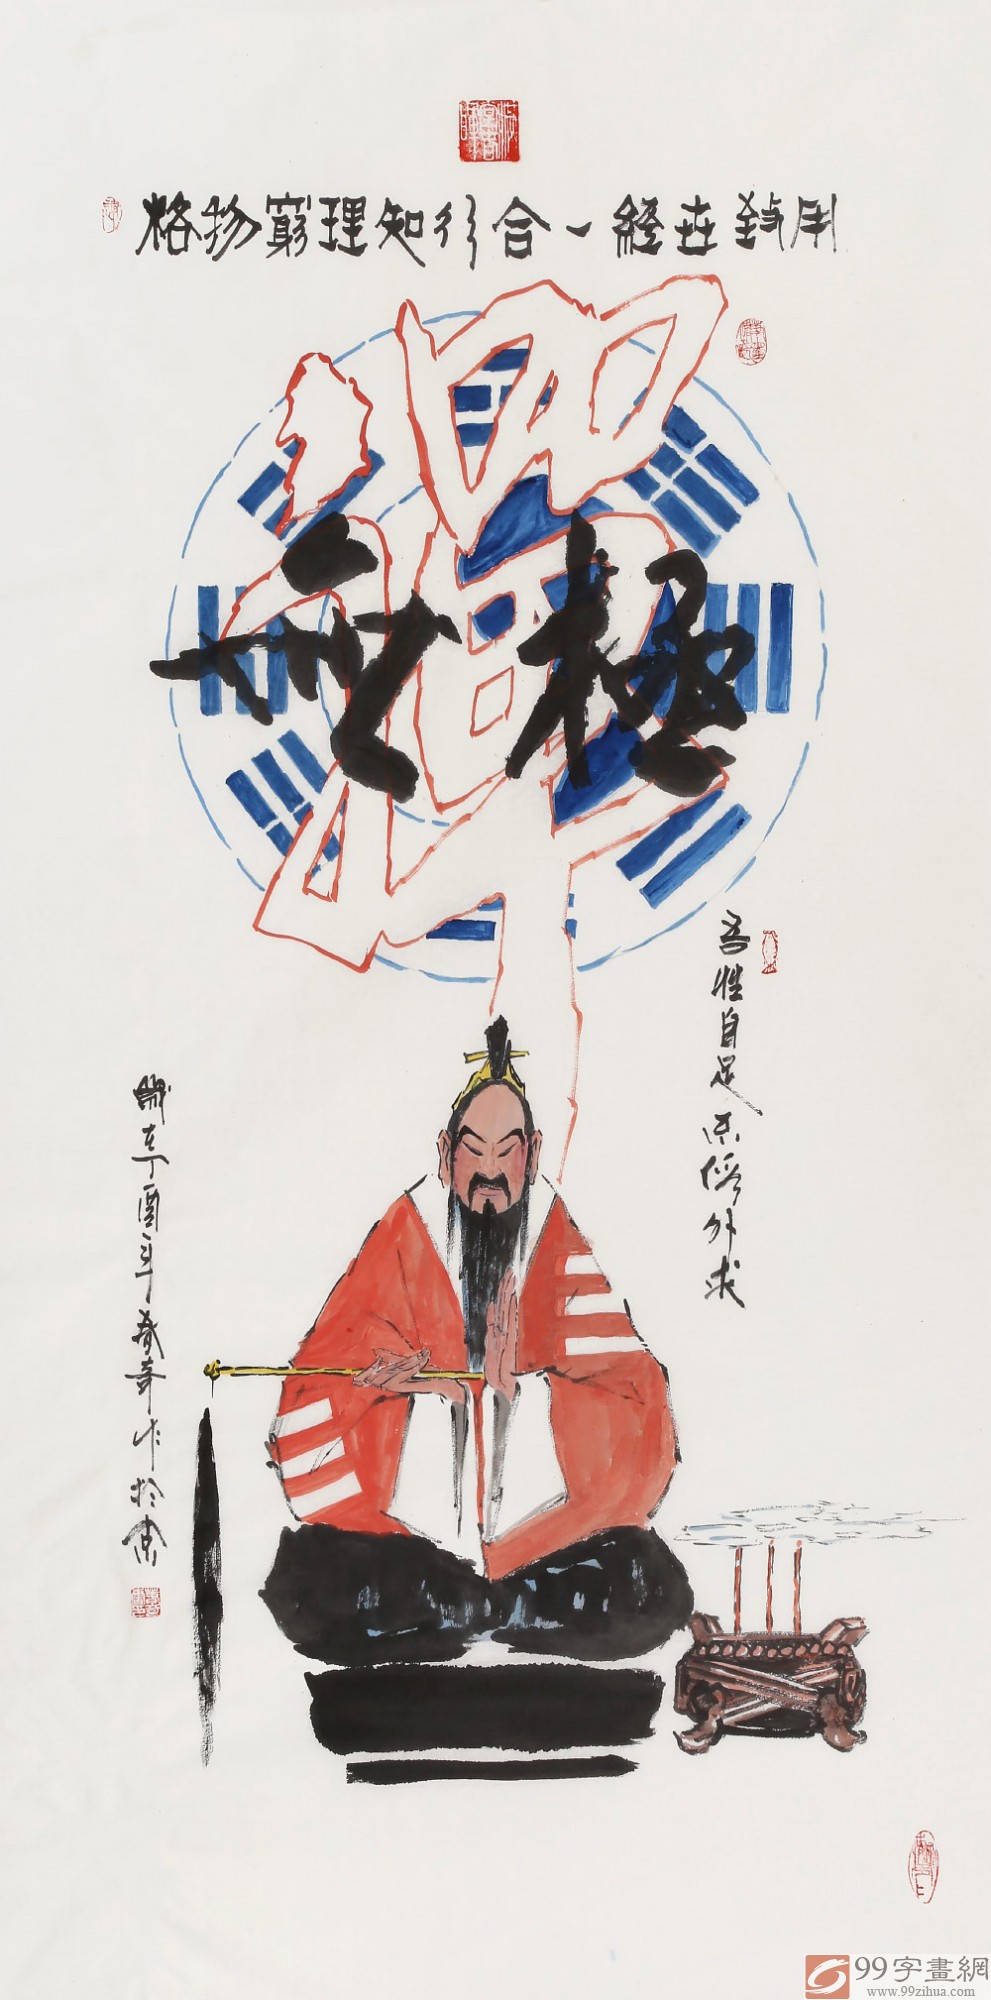 格物窮理知行合一經世致用
禪
無極
吾性自足不假外求
歲在丁酉年春奇作於
99字畫網
www.99zihua.com